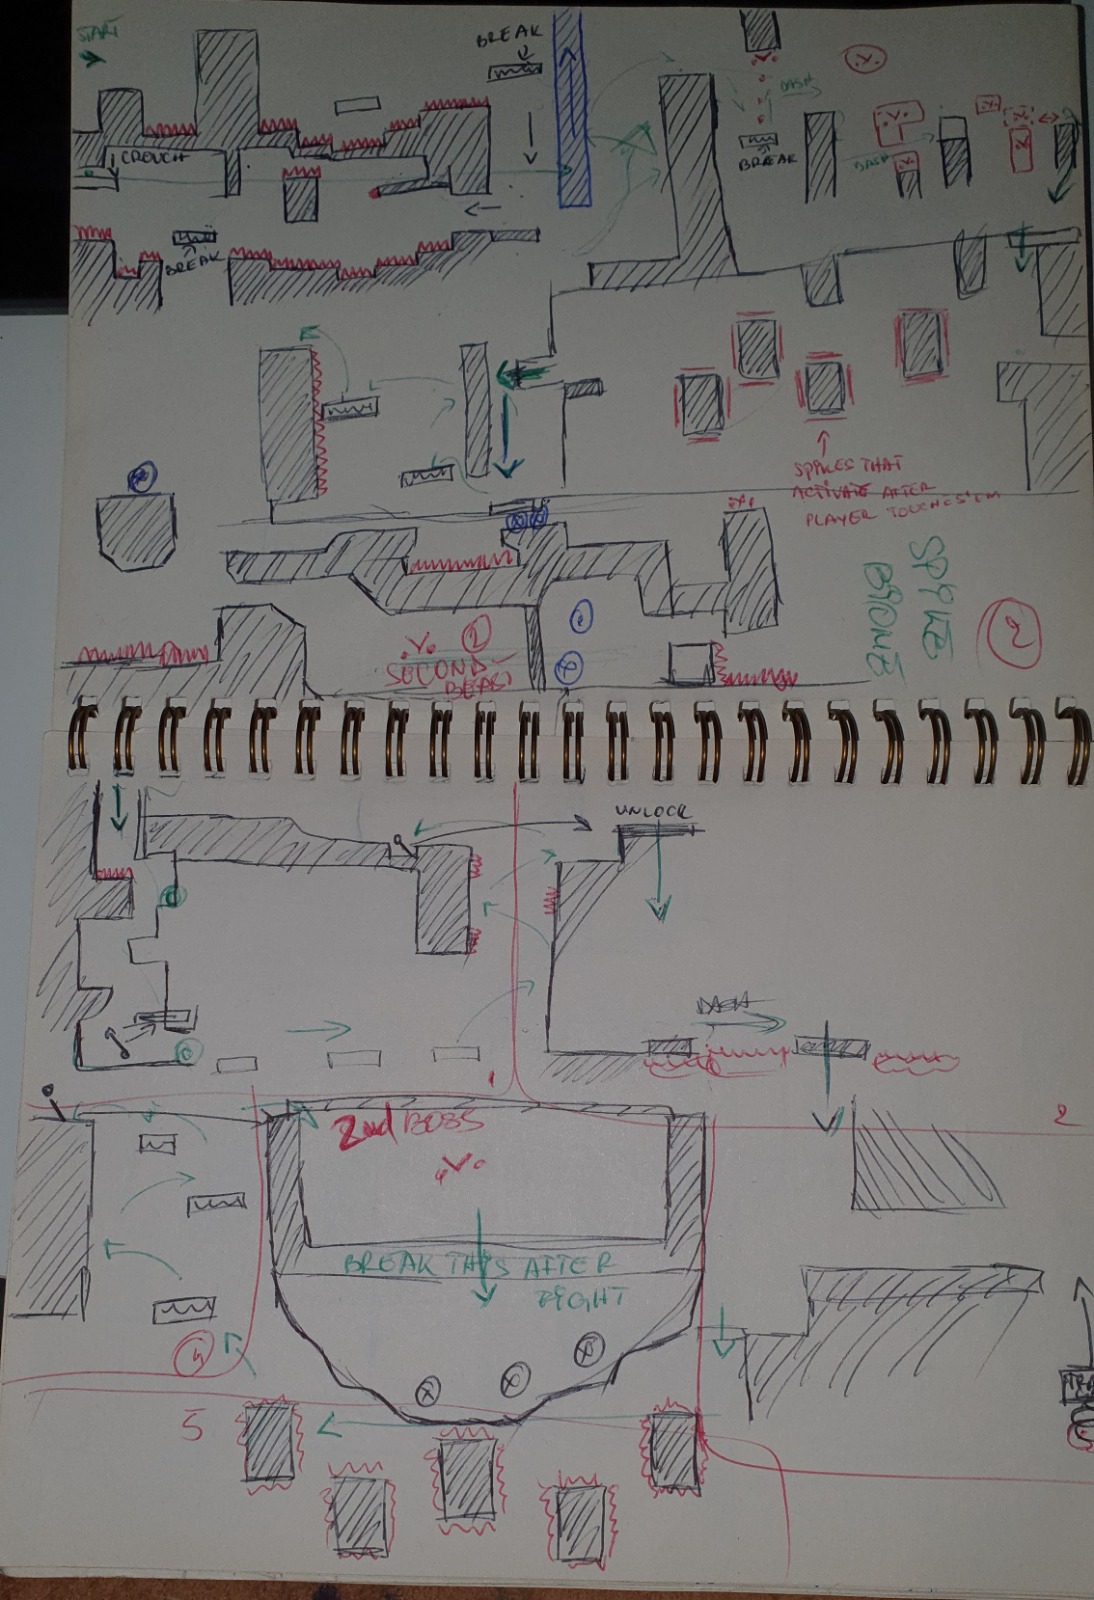 START
BREAK
DASH
CROUCH
BREAK
DASH
BREAK
SPIKES THAT
ACTIVATE AFTER
PLAYER TOUCHES'EM
SPIKE
BIOME
2
2
SECOND
BEAST
UNLOCK
DASH
1
2
2nd BOSS
BREAK THIS AFTER
FIGHT
4
5